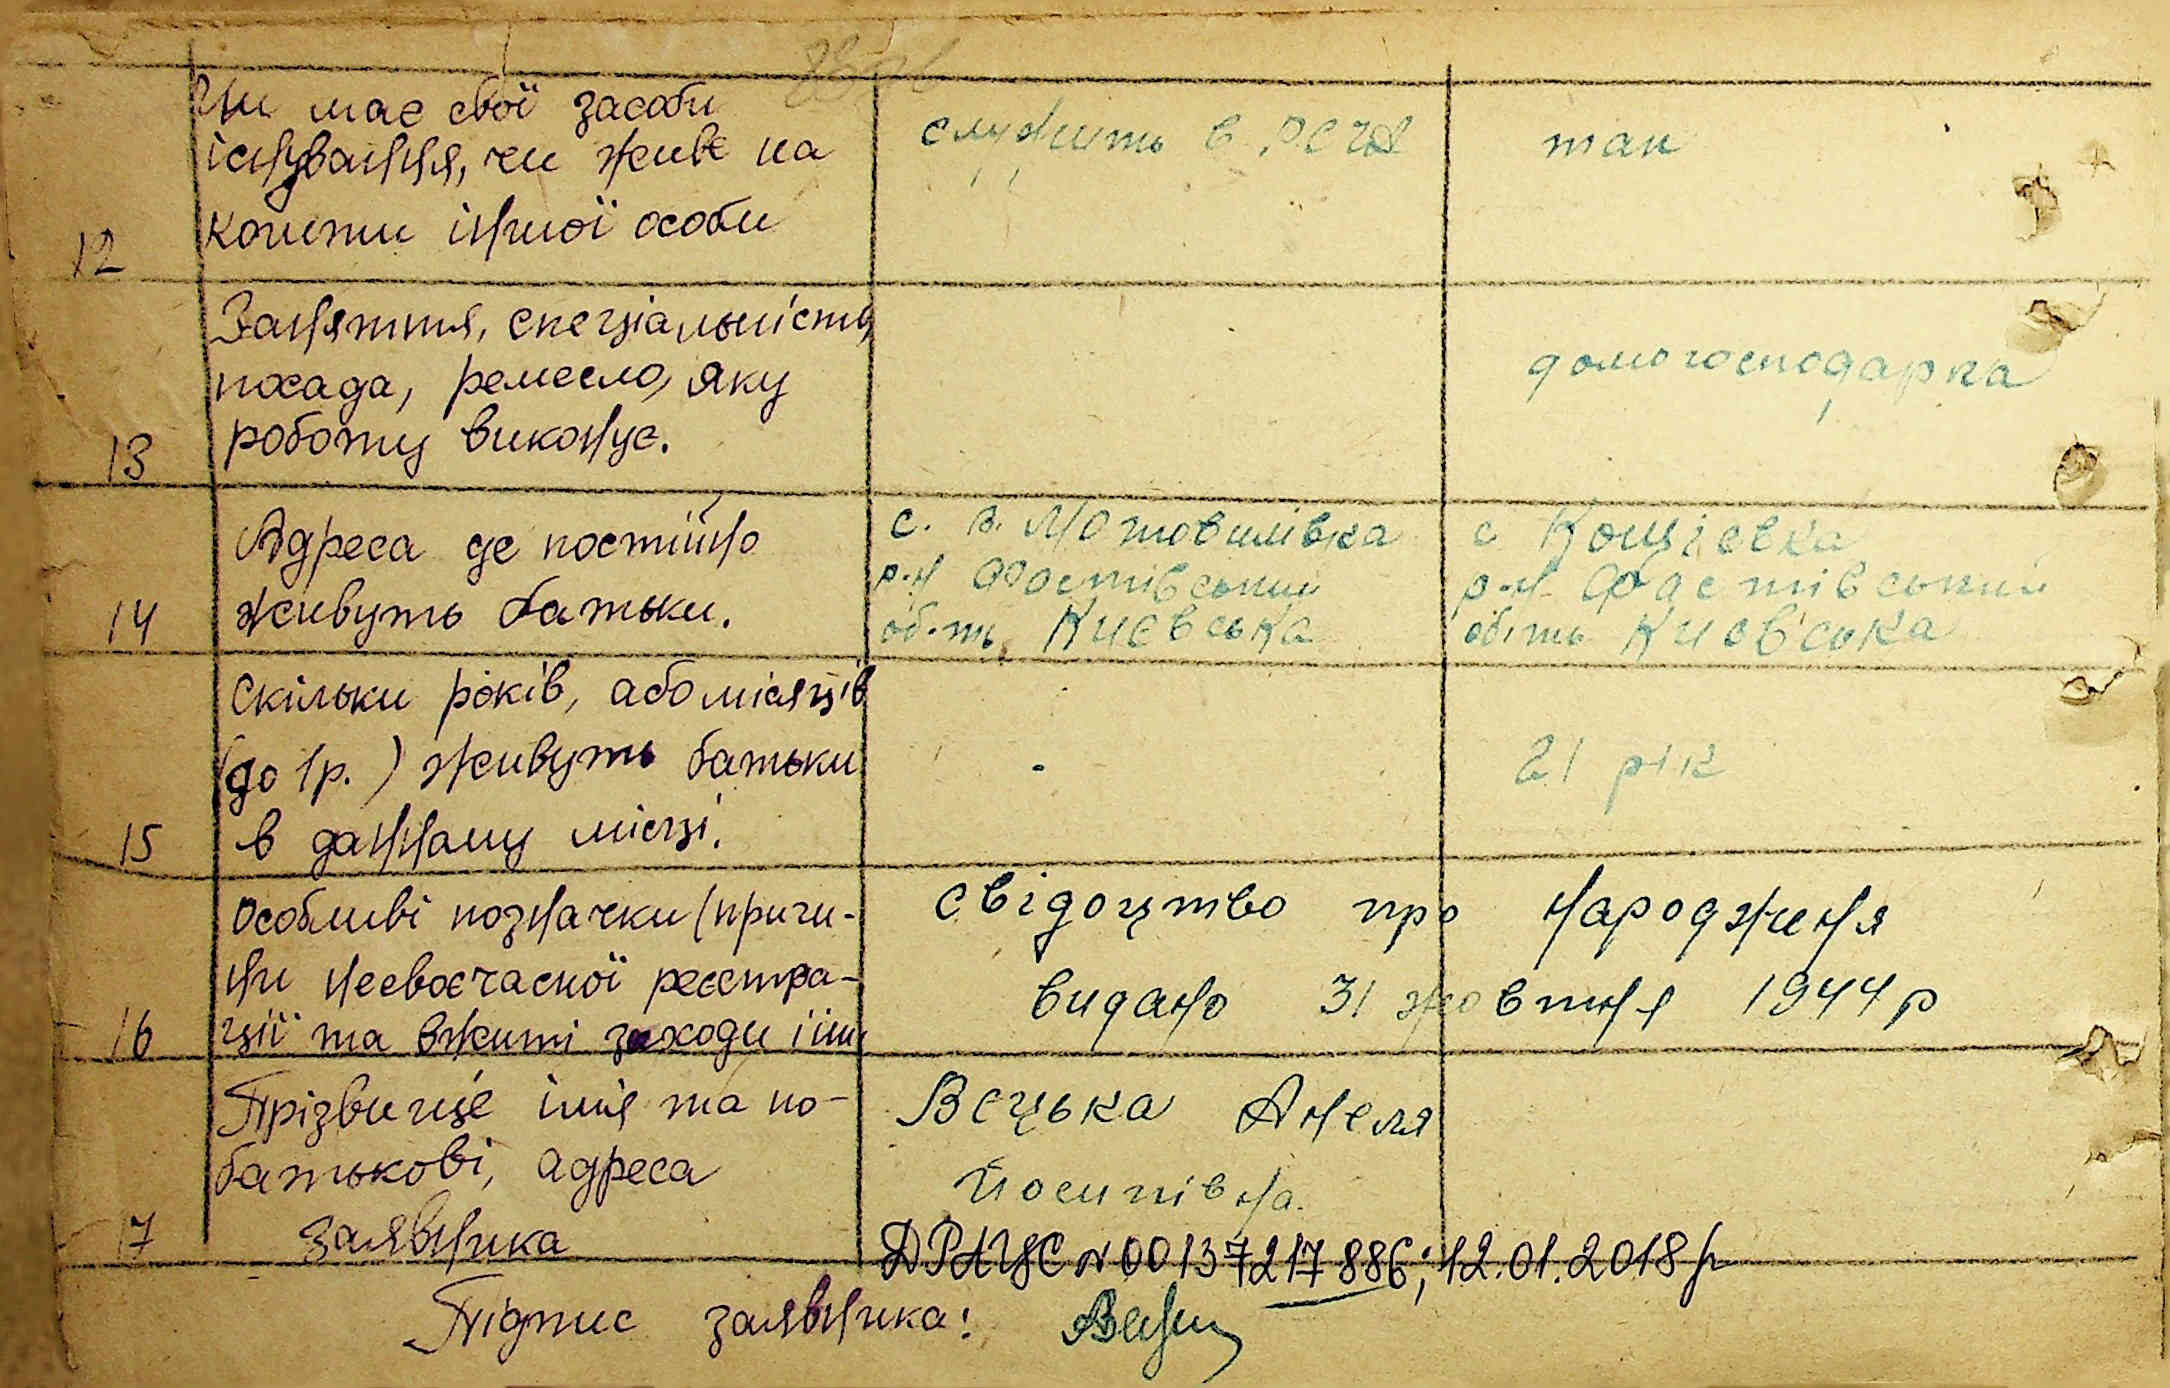 Чи має свої засоби
існування, чи живе на
кошти іншої особи
12
служить в РСЧА
так
Заняття, спеціальність,
посада, ремесло, яку
роботу виконує.
13
домогосподарка
Адреса де постійно
живуть батьки.
14
с. в. Мотовилівка
р-н Фастівський
об-ть Києвська
с Кощіевка
р-н Фастівський
обіть Києвська
Скільки років, або місяців
(до 1р.) живуть батьки
в данному місці.
15
-
21 рік
Особливі позначки (причи-
ни несвоєчасної реєстра-
ції та вжиті заходи і ін.
16
свідоцтво про народженя
видано 31 жовтня 1944 р
Прізвище імя та по-
батькові, адреса
заявника
17
Вєцька Анеля
Йосипівна.
ДРАЦС N 00137217886; 12.01.2018 р
Підпис заявника: